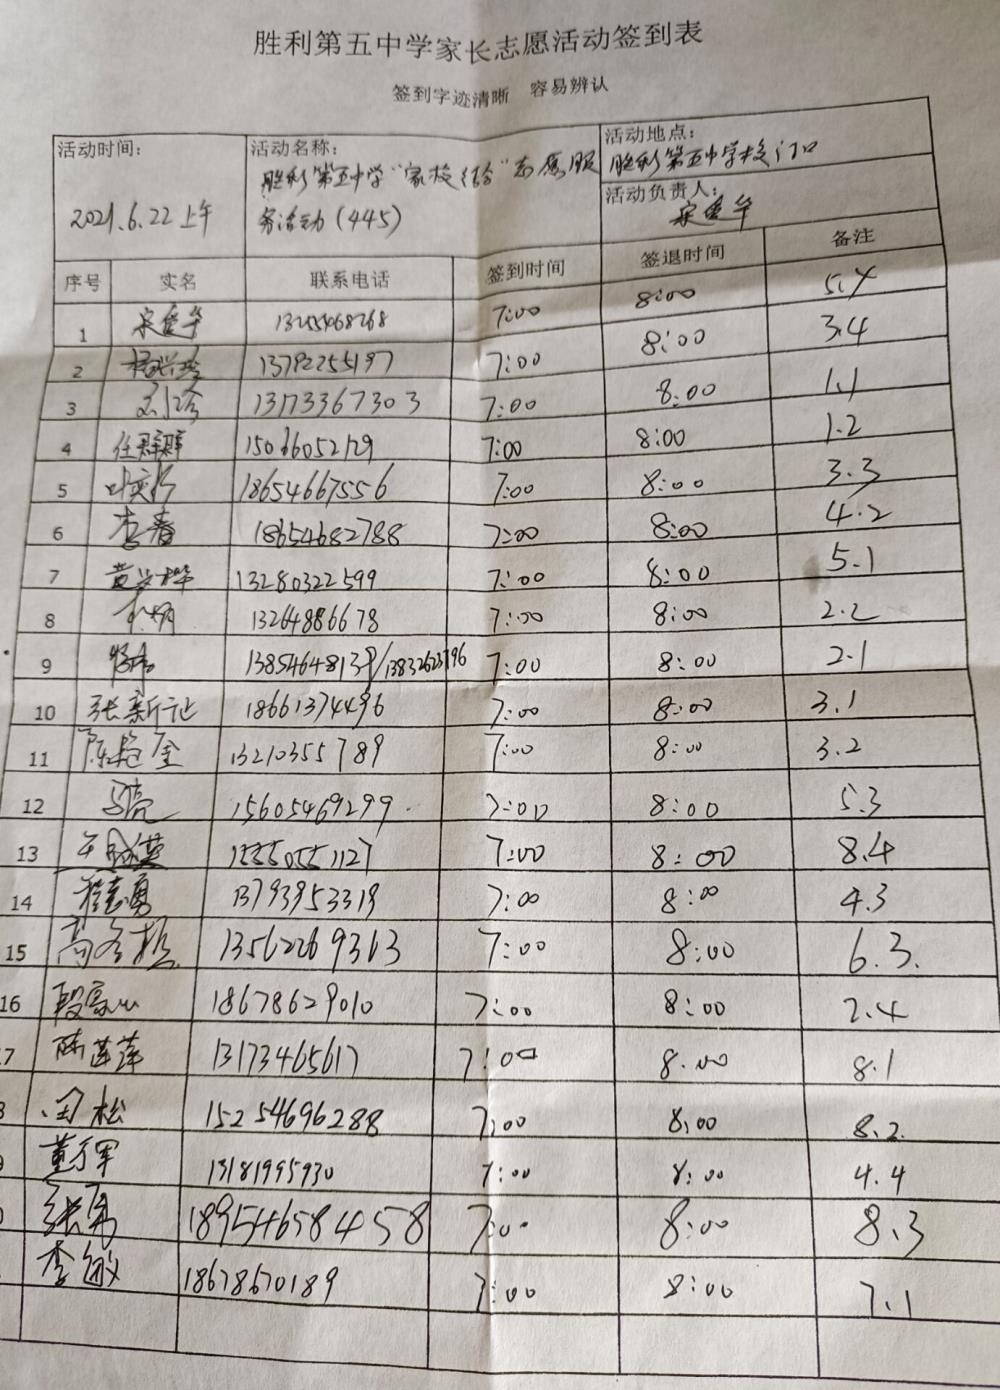 胜利第五中学家长志愿活动签到表
签到字迹清晰 容易辨认
活动时间: 活动名称: 活动地点:
胜利第五中学"家校结合"志愿服 胜利第五中学校门口
2021.6.22上午 务活动(445) 活动负责人:
序号 实名 联系电话 签到时间 签退时间 备注
1 7:00 8:00 5.4
2 13792255197 7:00 8:00 3.4
3 13173367303 7:00 8:00 1.1
4 任群群 15066052129 7:00 8:00 1.2
5 18654667556 7:00 8:00 3.3
6 李春 18654682788 7:00 8:00 4.2
7 13280322599 7:00 8:00 5.1
8 13264886678 7:00 8:00 2.2
9 7:00 8:00 2.1
10 张新 18661374496 7:00 8:00 3.1
11 陈 金 13210355789 7:00 8:00 3.2
12 马亮 15605469299 7:00 8:00 5.3
13 15550551127 7:00 8:00 8.4
14 程志勇 13793953319 7:00 8:00 4.3
15 高 13562269363 7:00 8:00 6.3.
16 18678629010 7:00 8:00 2.4
7 陈莲萍 13173465617 7:00 8:00 8.1
8 田松 15254696288 7:00 8:00 8.2
9 董行军 13181995930 7:00 8:00 4.4
0 张勇 18954658458 7:00 8:00 8.3
李敏 18678670189 7:00 8:00 7.1